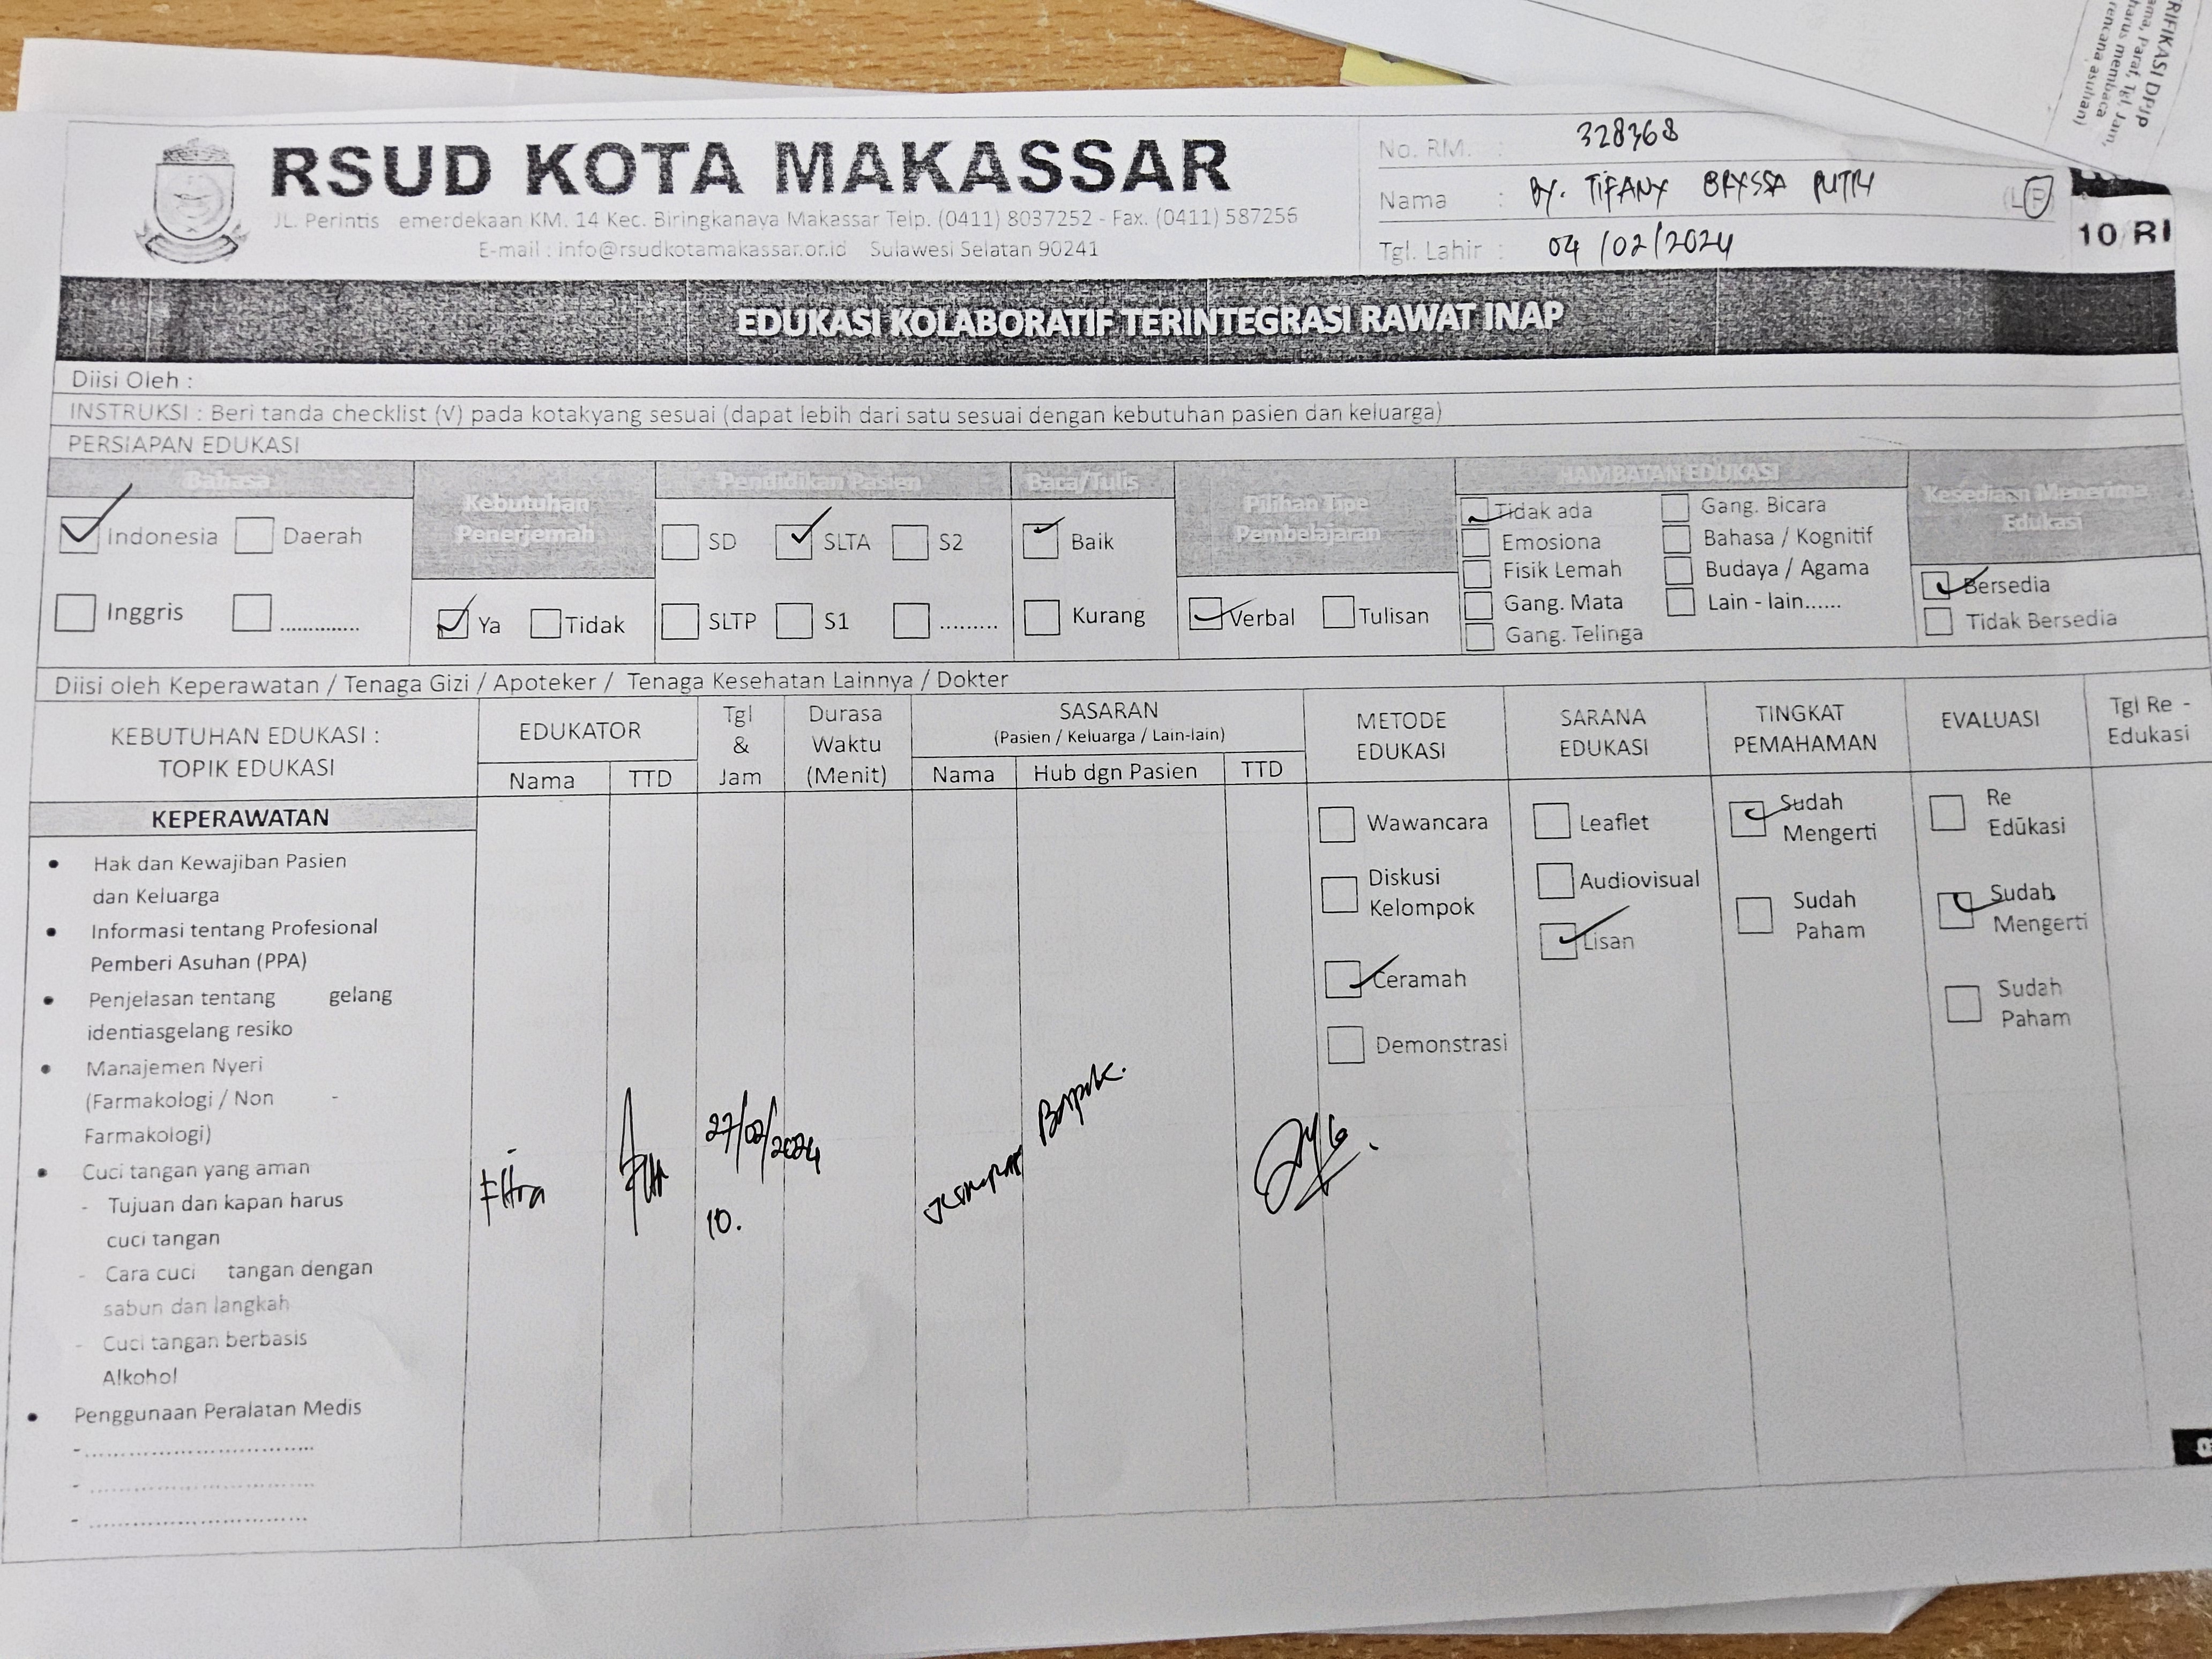 RIFIKASI DPJP
ama, Paraf, Tgl, Jam,
harus membaca
rencana asuhan)
RSUD KOTA MAKASSAR
JL. Perintis emerdekaan KM. 14 Kec. Biringkanaya Makassar Telp. (0411) 8037252 - Fax. (0411) 587256
E-mail : info@rsudkotamakassar.or.id Sulawesi Selatan 90241
No. RM. : 328368
Nama : BY. TIFANY BRYSSA PUTRI (L P)
Tgl. Lahir : 04/02/2024
10 RI
EDUKASI KOLABORATIF TERINTEGRASI RAWAT INAP
Diisi Oleh :
INSTRUKSI : Beri tanda checklist (√) pada kotakyang sesuai (dapat lebih dari satu sesuai dengan kebutuhan pasien dan keluarga)
PERSIAPAN EDUKASI
Bahasa
Indonesia Daerah
Inggris .............
Kebutuhan
Penerjemah
Ya Tidak
Pendidikan Pasien
SD SLTA S2
SLTP S1 .........
Baca/Tulis
Baik
Kurang
Pilihan Tipe
Pembelajaran
Verbal Tulisan
HAMBATAN EDUKASI
Tidak ada Gang. Bicara
Emosiona Bahasa / Kognitif
Fisik Lemah Budaya / Agama
Gang. Mata Lain - lain......
Gang. Telinga
Kesediaan Menerima
Edukasi
Bersedia
Tidak Bersedia
Diisi oleh Keperawatan / Tenaga Gizi / Apoteker / Tenaga Kesehatan Lainnya / Dokter
KEBUTUHAN EDUKASI :
TOPIK EDUKASI
EDUKATOR
Nama TTD
Tgl
&
Jam
Durasa
Waktu
(Menit)
SASARAN
(Pasien / Keluarga / Lain-lain)
Nama Hub dgn Pasien TTD
METODE
EDUKASI
SARANA
EDUKASI
TINGKAT
PEMAHAMAN
EVALUASI
Tgl Re -
Edukasi
KEPERAWATAN
• Hak dan Kewajiban Pasien
dan Keluarga
• Informasi tentang Profesional
Pemberi Asuhan (PPA)
• Penjelasan tentang gelang
identiasgelang resiko
• Manajemen Nyeri
(Farmakologi / Non -
Farmakologi)
• Cuci tangan yang aman
- Tujuan dan kapan harus
cuci tangan
- Cara cuci tangan dengan
sabun dan langkah
- Cuci tangan berbasis
Alkohol
• Penggunaan Peralatan Medis
- ..................................
- ..................................
- ..................................
27/02/2024
10.
Bapak.
Wawancara
Diskusi
Kelompok
Ceramah
Demonstrasi
Leaflet
Audiovisual
Lisan
Sudah
Mengerti
Sudah
Paham
Re
Edukasi
Sudah
Mengerti
Sudah
Paham